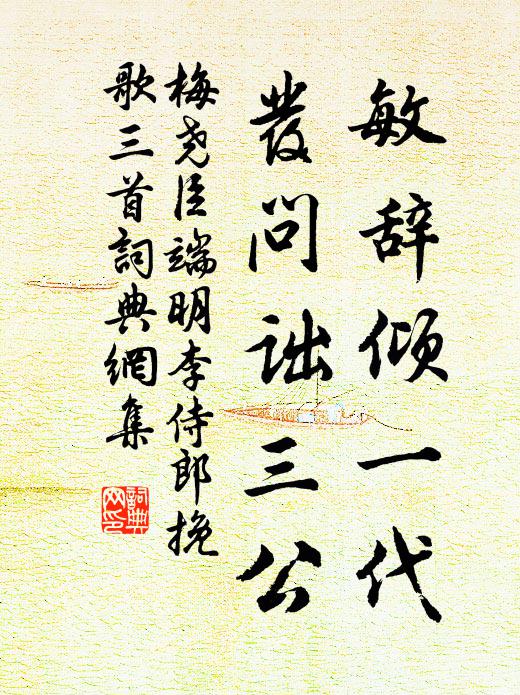 敏辞倾一代
發问詘三公
梅尧臣端明李侍郎挽
歌三首詞典網集
詞典
网印